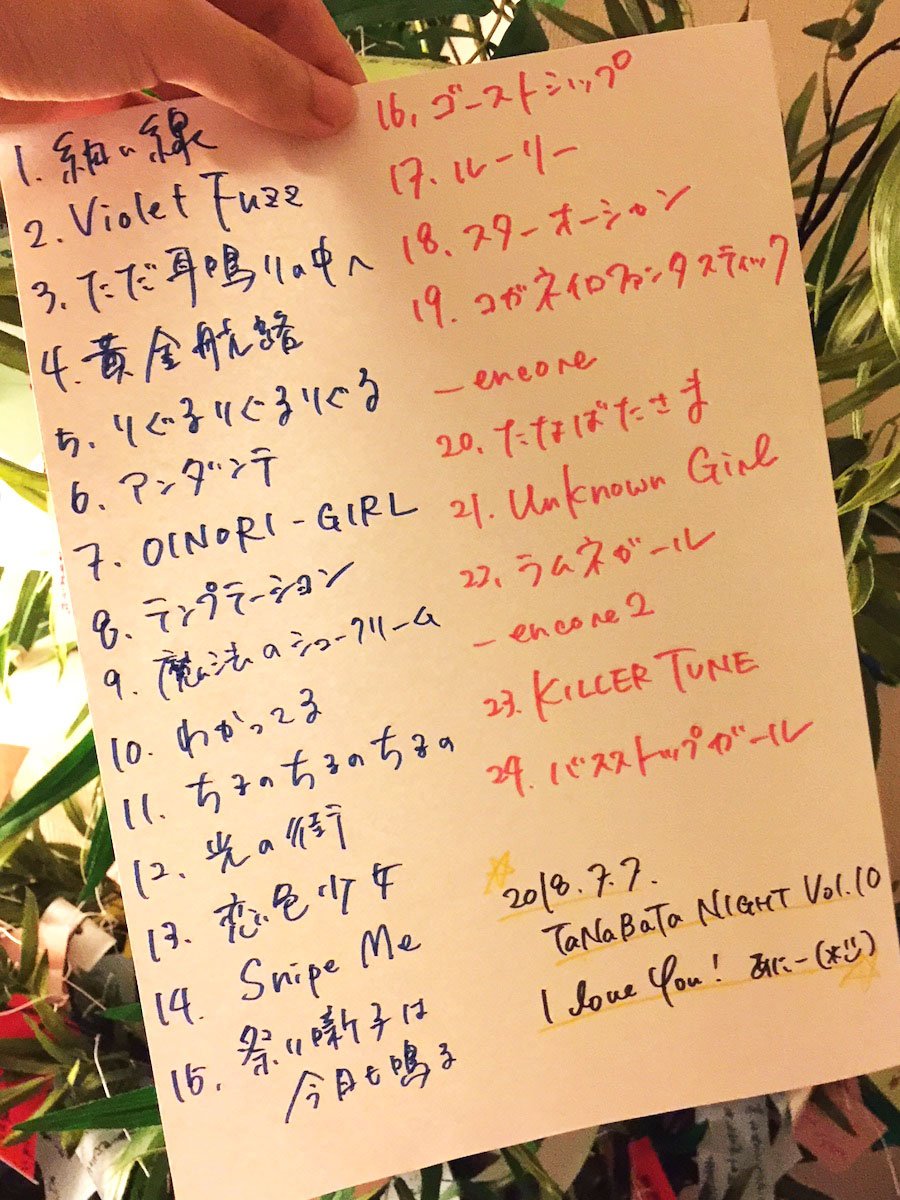 1. 紺の線
2. Violet Fuzz
3. ただ耳鳴りの中へ
4. 黄金航路
5. りぐるりぐるりぐる
6. アンダンテ
7. OINORI-GIRL
8. テンプテーション
9. 魔法のシュークリーム
10. わかってる
11. ちるのちるのちるの
12. 光の街
13. 恋色少女
14. Snipe Me
15. 祭り囃子は
今日も鳴る
16. ゴーストシップ
17. ルーリー
18. スターオーシャン
19. コガネイロファンタスティック
— encore
20. たなばたさま
21. Unknown Girl
22. ラムネガール
— encore2
23. KILLER TUNE
24. バスストップガール
2018.7.7.
TaNaBaTa NIGHT Vol.10
I love You! あにー